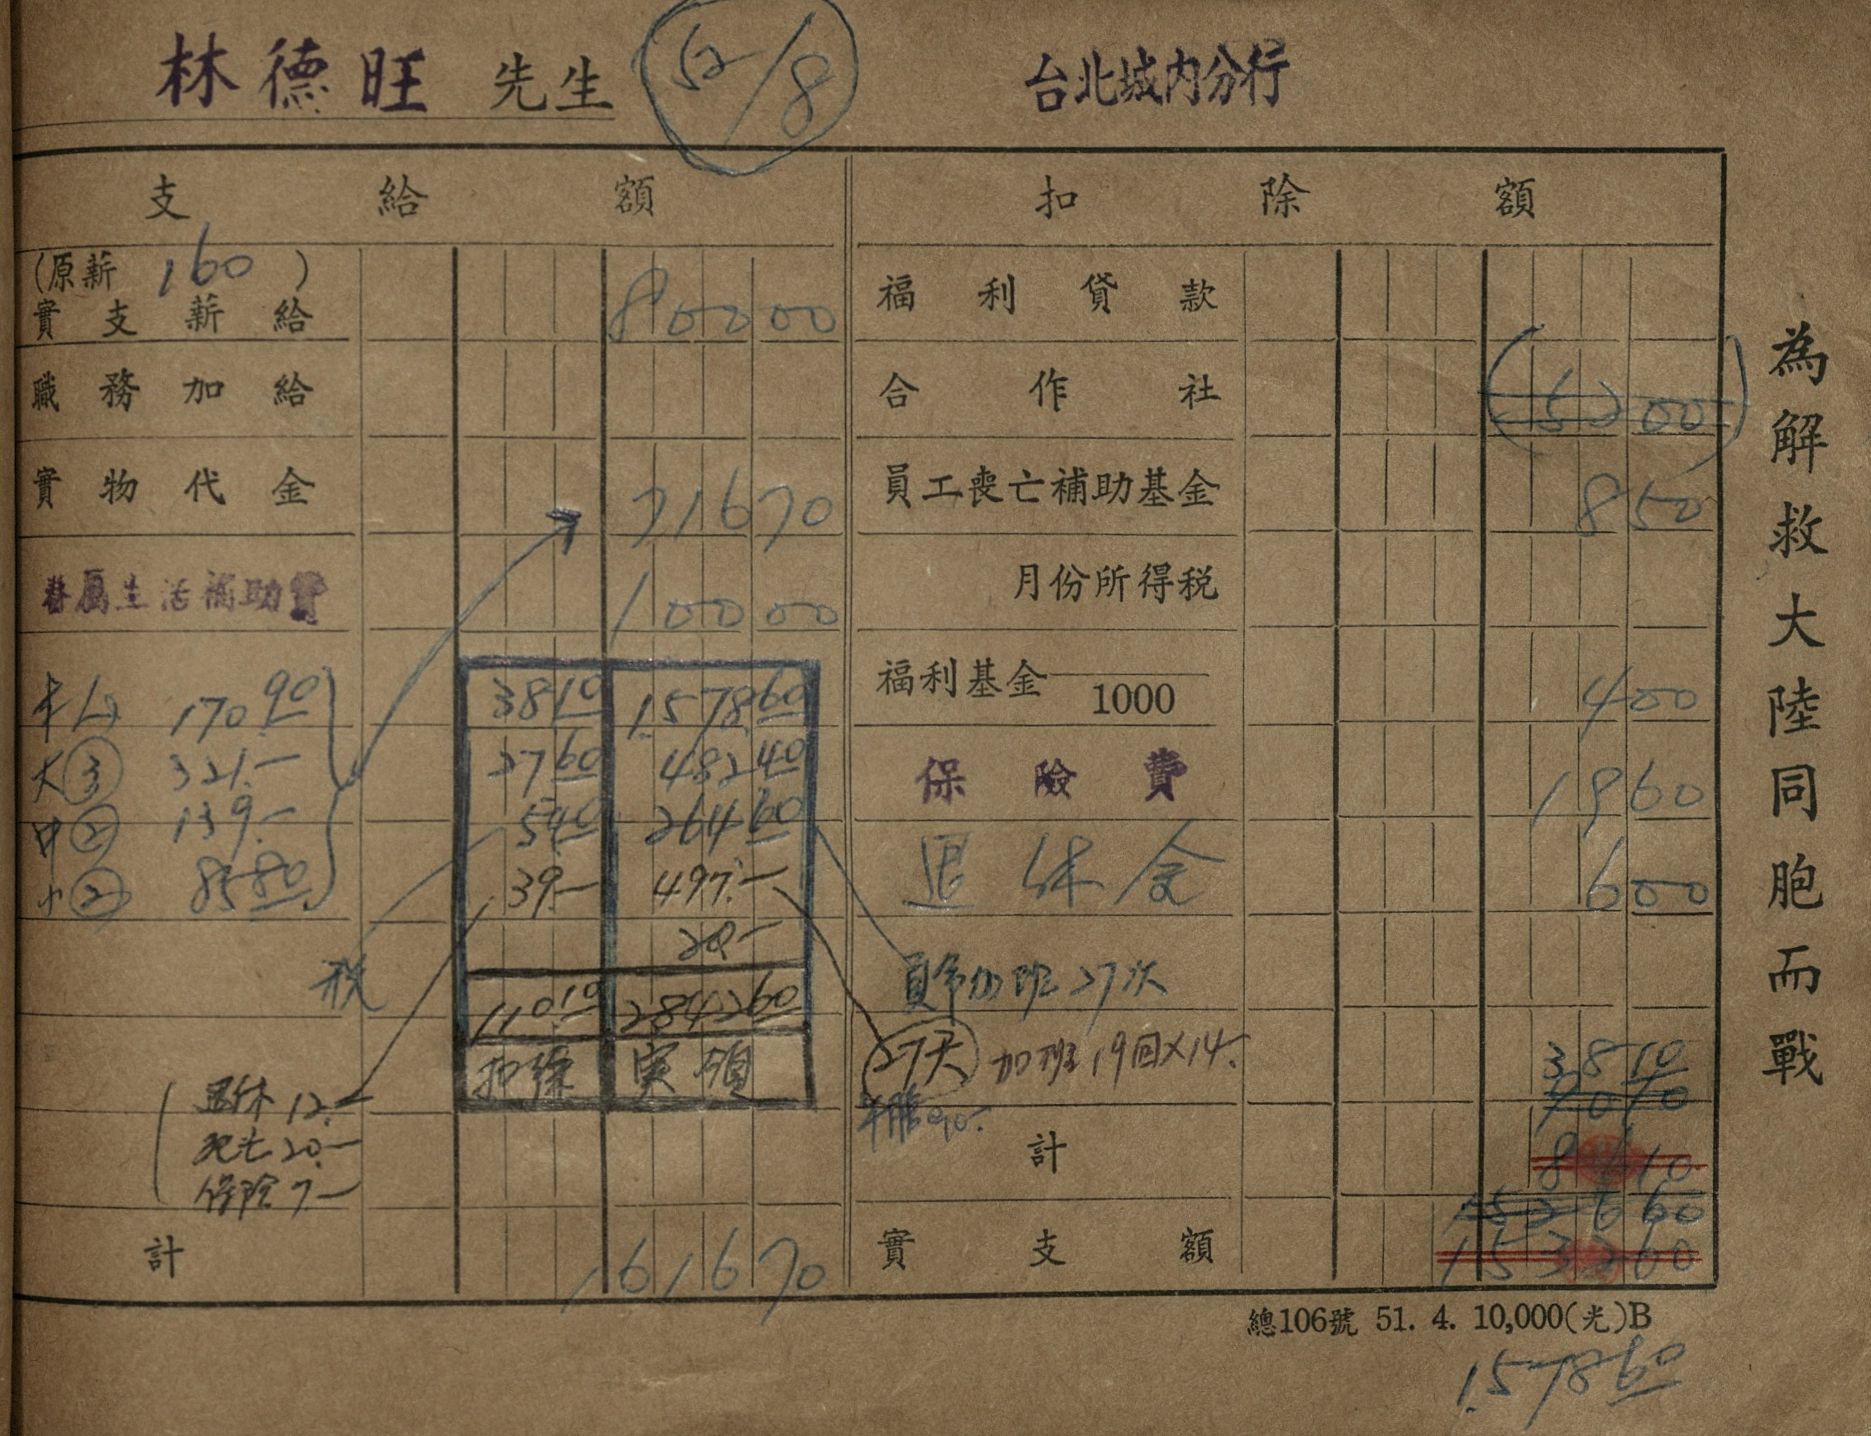 林德旺 先生
52/8
台北城內分行
支給額
扣除額
(原薪 160 )
實支薪給 80000
福利貸款
職務加給
合作社 (5200)
實物代金 71670
員工喪亡補助基金 850
眷屬生活補助費 10000
月份所得稅
福利基金 1000 400
170.90
大③ 321.-
中② 139.-
小② 85.80
3810 1,578.60
2760 482.40
540 264.60
39.- 497.-
20.-
110.10 2842.60
扣繳 実領
保險費 1960
退休金 600
税
員常加班27次
27天 加班19回×14.-
退休 12.-
死亡 20.-
保險 7.-
3810
7070
計 8610
152660
計 161670
實支額 153260
總106號 51. 4. 10,000(光)B
1,578.60
為解救大陸同胞而戰